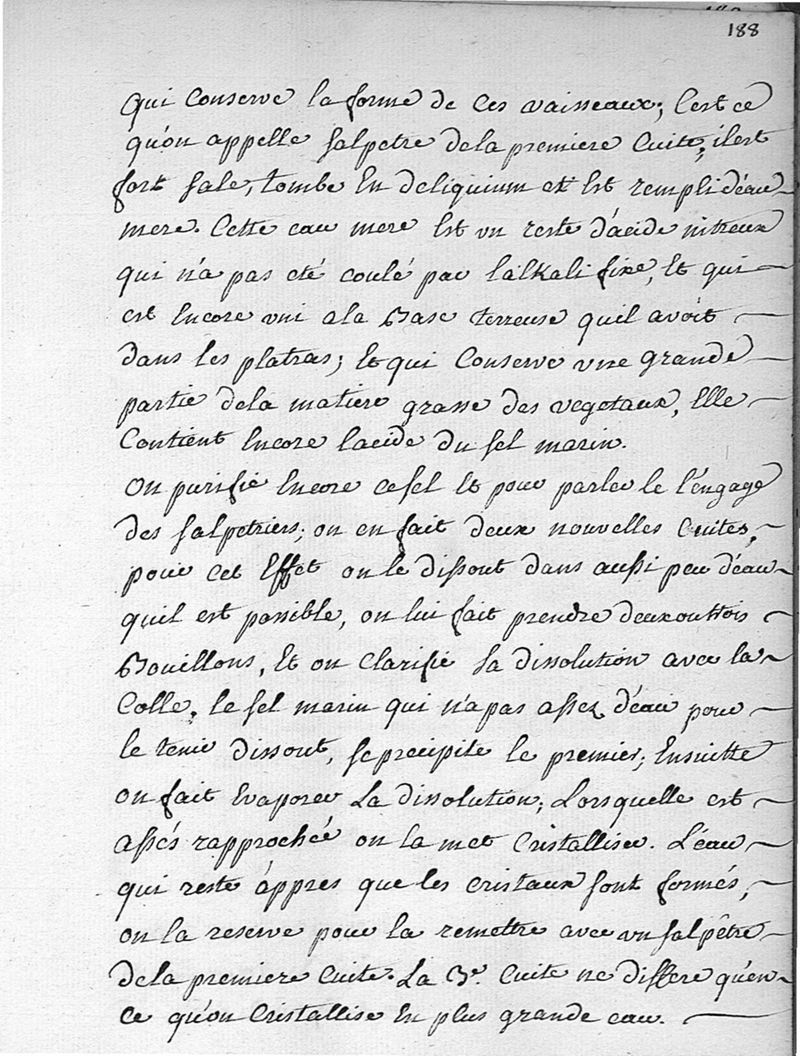 188
qui Conserve la forme de Ces vaisseaux; C'est ce
qu'on appelle salpetre dela premiere Cuite; il est
fort sale, tombe En deliquium et Est rempli d'eau
mere. Cette eau mere Est un reste d'acide nitreux
qui n'a pas eté coulé par l'alkali fixe, Et qui
est Encore uni a la Base terreuse quil avoit
dans les platras; Et qui Conserve une grande
partie dela matiere grasse des vegetaux, Elle
Contient Encore lacide du sel marin.
On purifie Encore ce sel Et pour parler le l'engage
des salpetriers; on en fait deux nouvelles Cuites,
pour cet Effet on le dissout dans aussi peu d'eau
quil est possible, on lui fait prendre deux outtrois
Bouillons, Et on Clarifie sa dissolution avec la
Colle. le sel marin qui n'a pas assez d'eau pour
le tenir dissout, se precipite le premier; Ensuitte
on fait Evaporer La dissolution; Lorsquelle est
assés rapprochée on la met Cristalliser. L'eau
qui reste âppres que les cristaux sont formés,
on la reserve pour la remettre avec un salpêtre
dela premiere Cuite. La 3e. Cuite ne differe qu'en
Ce qu'on Cristallise En plus grande eau.